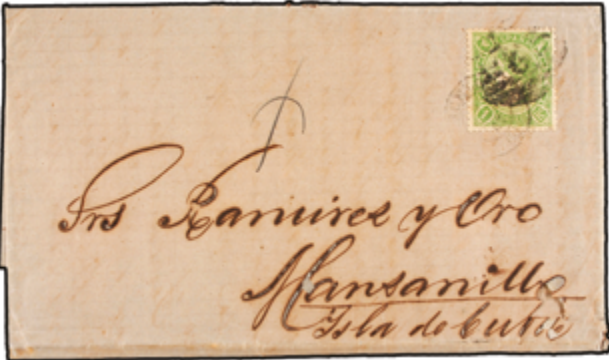 Srs Ramirez y Oro
Mansanillo
Isla de Cuba